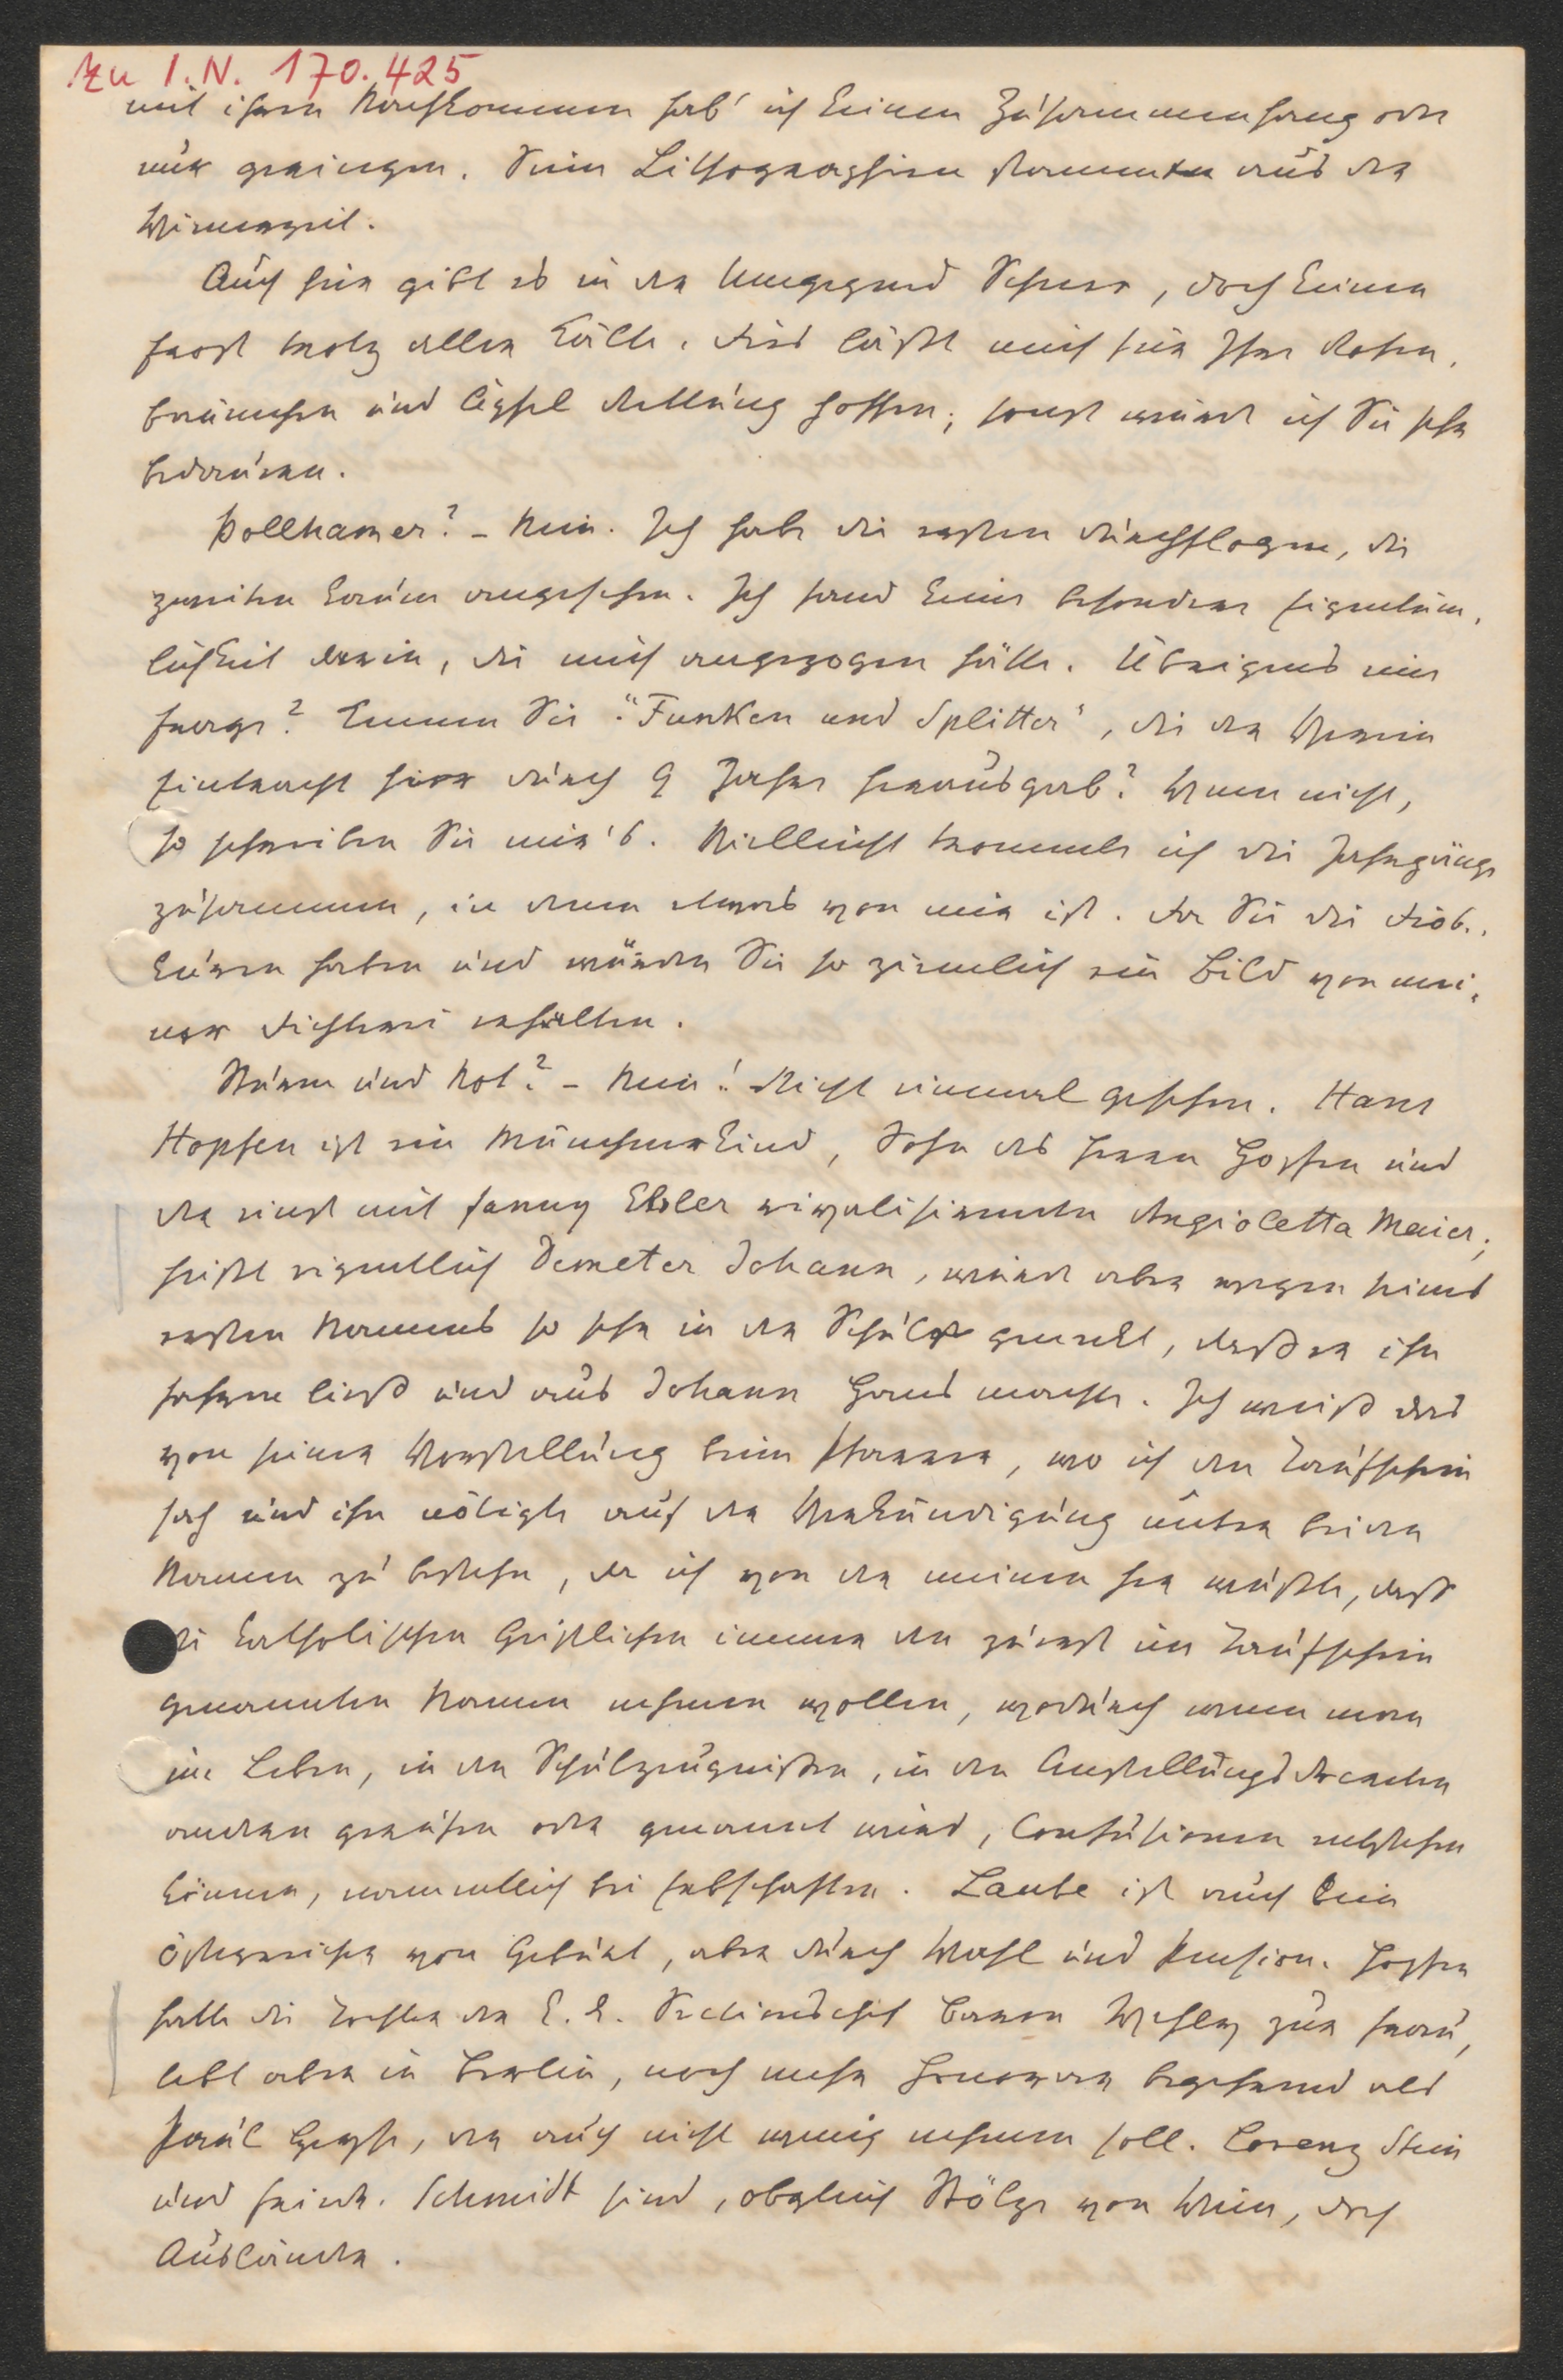 zu I.N. 170.425
mit ihren Nachkommen hab' ich keinen Zusammenhang oder
nur geringen. Seine Lithographien stammten aus der
Wienerzeit.
Auch hier gibt es in der Umgegend Schnee, doch keinen
Frost trotz aller Kälte. Dies läßt mich für Ihre Rosen-
bäumchen und Äpfel Rettung hoffen; sonst würde ich Sie sehr
bedauern.
Pollhamer? - Nein. Ich habe die ersten durchflogen, die
zweiten kaum angesehen. Ich fand keine besondere Eigentüm-
lichkeit darin, die mich angezogen hätte. Übrigens eine
Frage? Kennen Sie "Funken und Splitter", die der Verein
Eintracht hier durch 9 Jahre herausgab? Wenn nicht,
so schreiben Sie mir's. Vielleicht trommele ich die Jahrgänge
zusammen, in denen etwas von mir ist. Da Sie die Dios-
kuren haben und würden Sie so ziemlich ein Bild von mei-
ner Dichterei erhalten.
Sturm und Not? - Nein! Nicht einmal gesehen. Hans
Hopfen ist ein Münchnerkind, Sohn des Herrn Hopfen und
der einst mit Fanny Elsler rivalisirenden Angioletta Maier;
heißt eigentlich Demeter Johann, wurde aber wegen seines
ersten Namens so sehr in der Schule geneckt, daß er ihn
fahren ließ und aus Johann Hans machte. Ich weiß das
von seiner Vorstellung beim Pfarrer, wo ich den Taufschein
sah und ihn nötigte auf der Verkündigung unter beiden
Namen zu bestehen, da ich von der meinen her wußte, daß
die katholischen Geistlichen immer den zuerst im Taufschein
genannten Namen nehmen wollen, wodurch wenn man
im Leben, in den Schulzeugnißen, in den Anstellungsdecreten
anders gerufen oder genannt wird, Confusionen entstehen
können, namentlich bei Erbschaften. Laube ist auch kein
Österreicher von Geburt, aber durch Wahl und Pension. Hopfen
hatte die Tochter des k. k. Sectionschef Baron Wehly zur Frau,
lebt aber in Berlin, noch mehr Honorar begehrend als
Paul Heyse, der auch nicht wenig nehmen soll. Lorenz Stein
und Friedr. Schmidt sind, obgleich Stölze von Wien, doch
Ausländer.